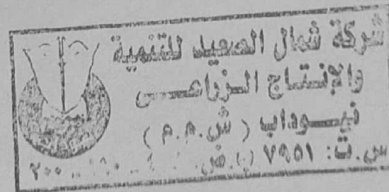 شركة شمال الصعيد للتنمية
والإنتاج الزراعى
نيوداب ( ش.م.م )
س.ت: ٧٩٥١